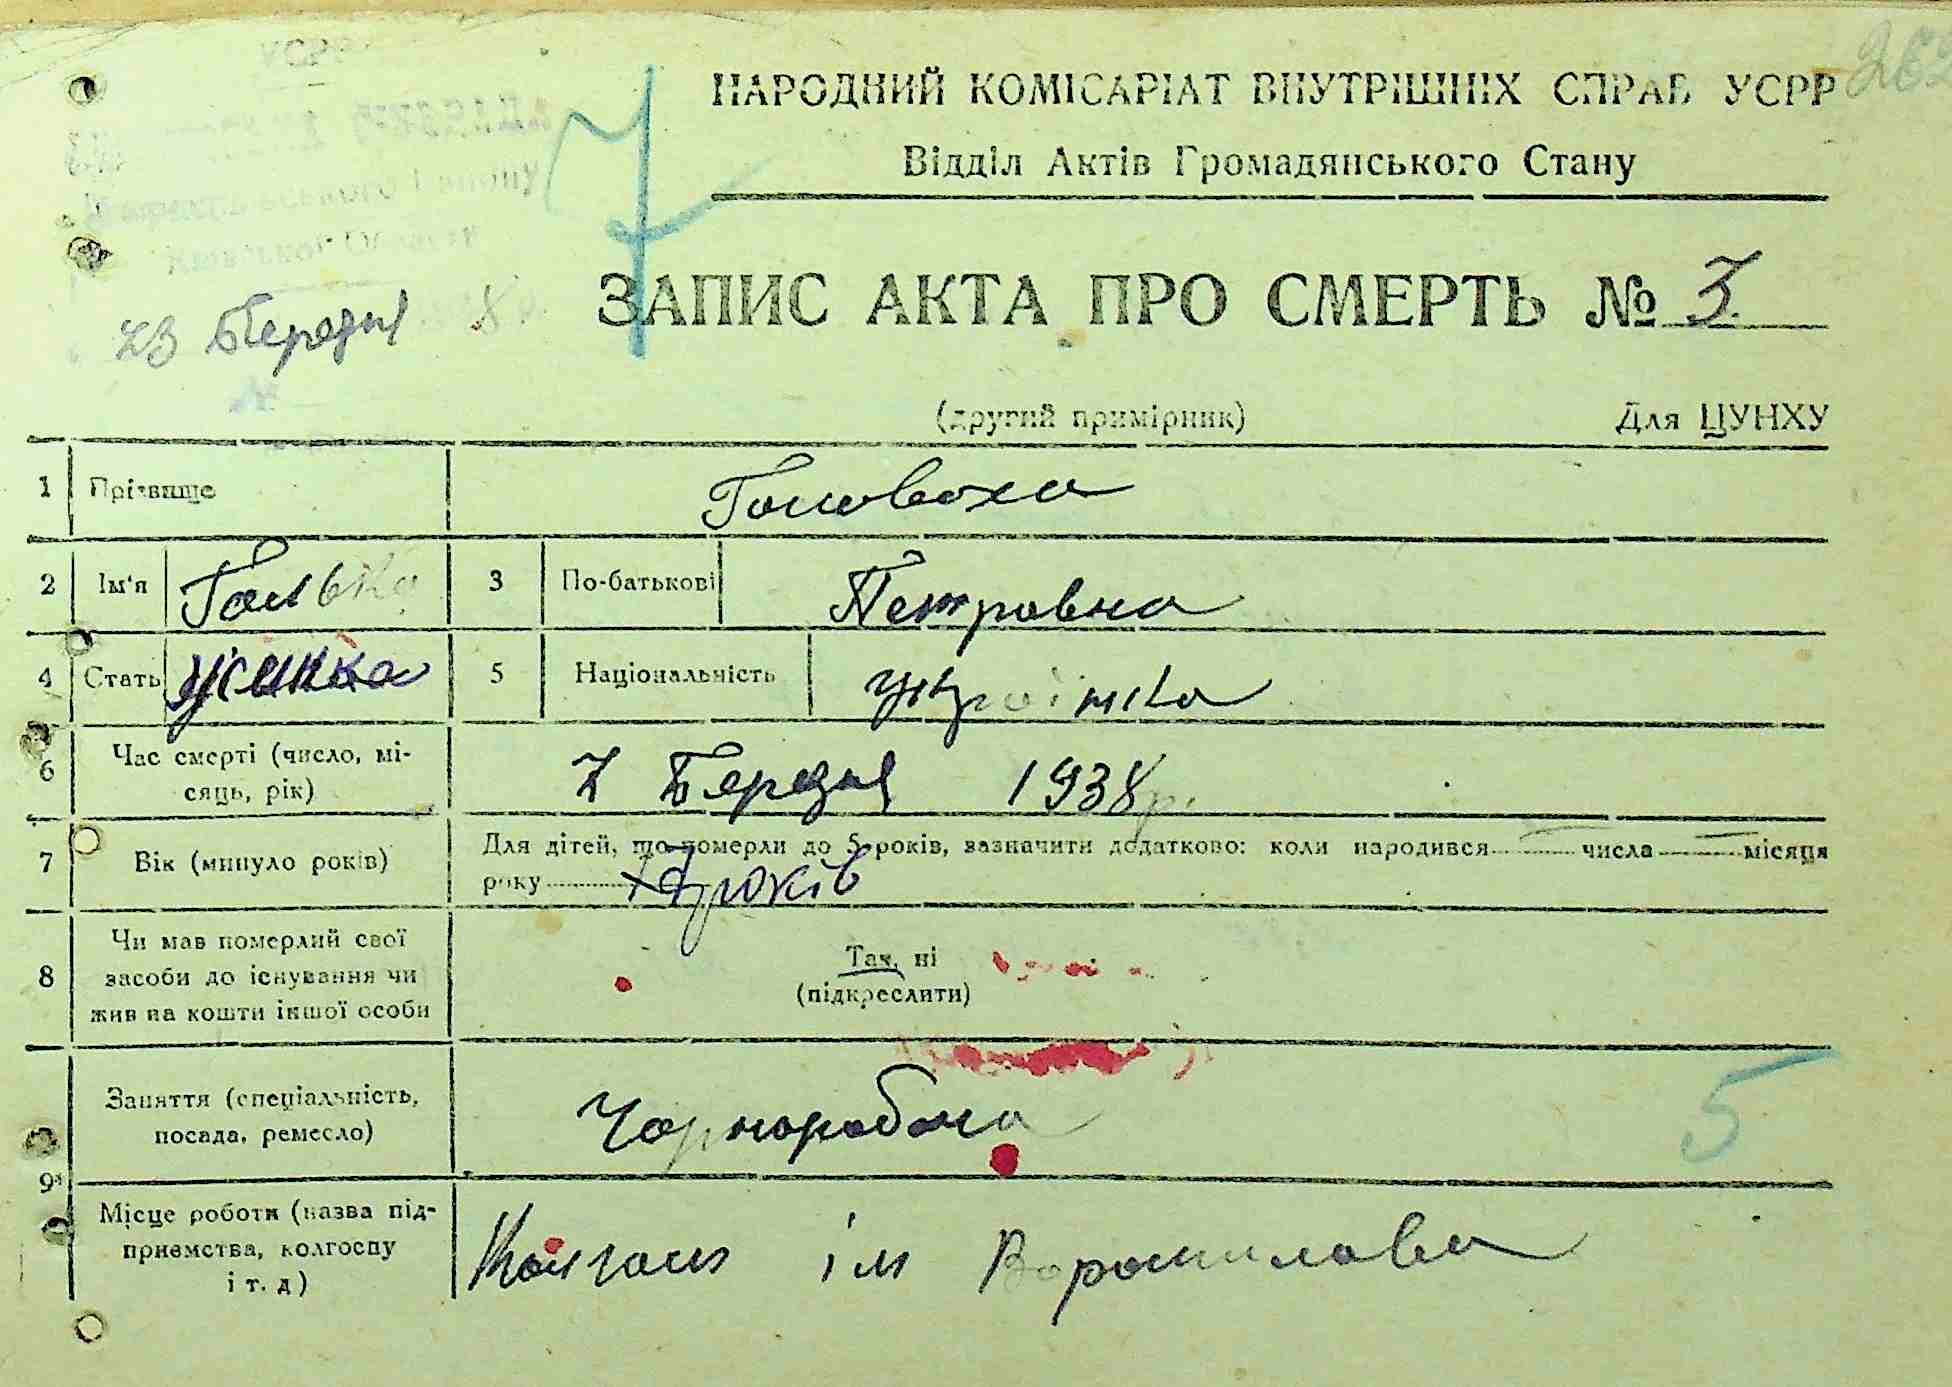 НАРОДНИЙ КОМІСАРІАТ ВНУТРІШНІХ СПРАВ УСРР
Відділ Актів Громадянського Стану
7
ЗАПИС АКТА ПРО СМЕРТЬ № 3
Київської Області
23 Березня
(другий примірник) Для ЦУНХУ
1 Прізвище Головоха
2 Ім'я Галька 3 По-батькові Петровна
4 Стать жінка 5 Національність українка
6 Час смерті (число, мі-
сяць, рік) 7 Березня 1938 р.
7 Вік (минуло років) Для дітей, що померли до 5 років, зазначити додатково: коли народився числа місяця
року років
8 Чи мав померлий свої
засоби до існування чи
жив на кошти іншої особи
Так, ні
(підкреслити)
Заняття (спеціальність,
посада, ремесло) Чорноробоча
5
9
Місце роботи (назва під-
приємства, колгоспу
і т. д) Колгосп ім Ворошилова